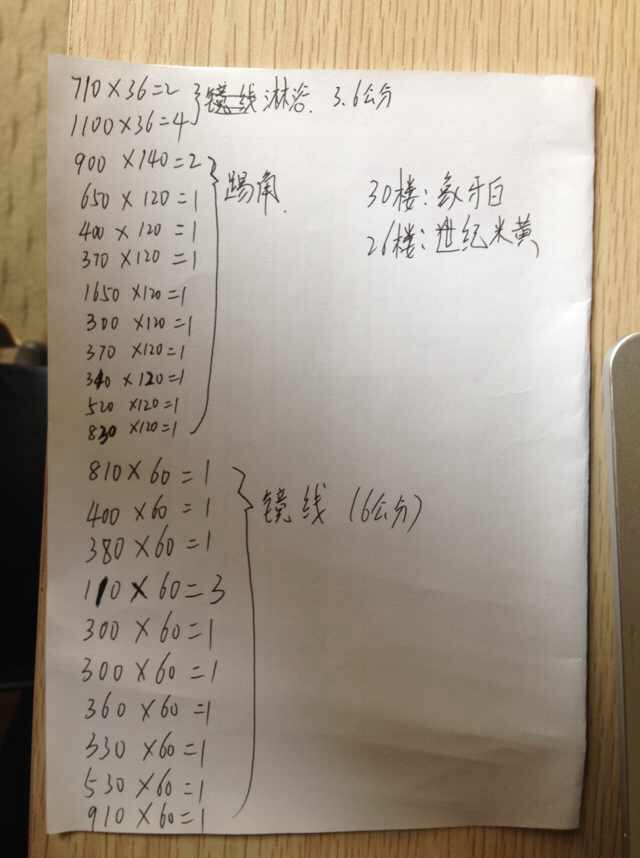 710×36=2
1100×36=4
淋浴. 3.6公分
900×140=2
650×120=1
400×120=1
370×120=1
1650×120=1
300×120=1
370×120=1
340×120=1
520×120=1
830×120=1
踢角.
30楼:象牙白
26楼:世纪米黄
810×60=1
400×60=1
380×60=1
110×60=3
300×60=1
300×60=1
360×60=1
330×60=1
530×60=1
910×60=1
镜线(6公分)